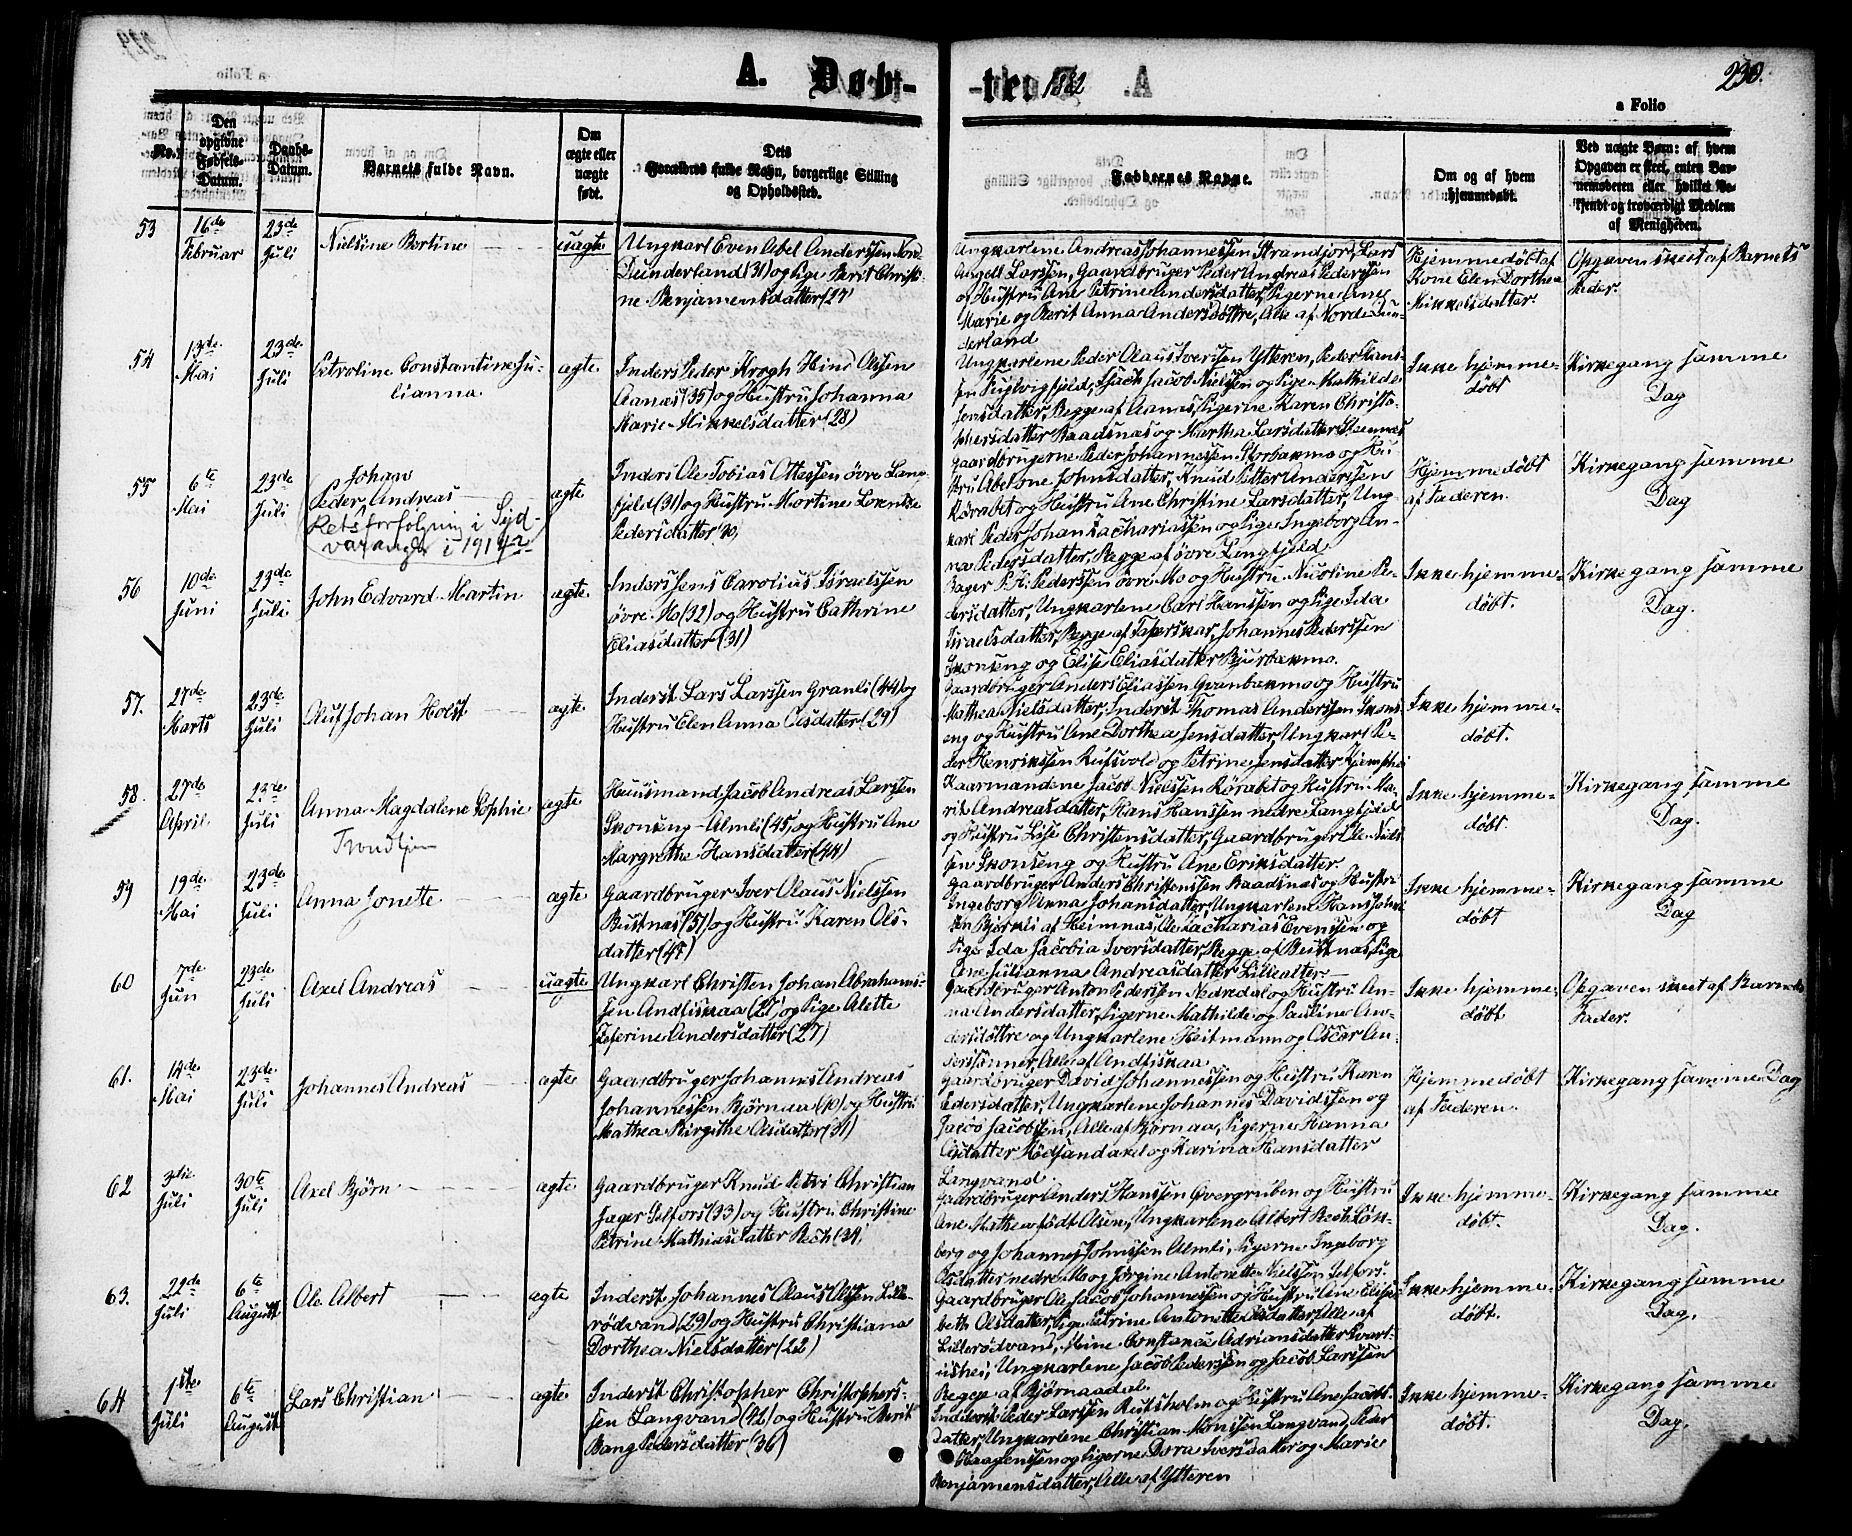 A. Døb-
-te. 1882
230.
a Folio
No.
Den opgivne Fødsels-Datum.
Daabs-Datum.
Barnets fulde Navn.
Om ægte eller uægte født.
Dets Forældres fulde Navn, borgerlige Stilling og Opholdssted.
Faddernes Navne.
Om og af hvem hjemmedøbt.
Ved uægte Børn: af hvem Opgaven er skeet, enten Barnemoderen eller hvilket bekjendt og troværdigt Medlem af Menigheden.
53
16de Februar
23de Juli
Nielsine Bertine
uægte
Ungkarl Even Abel Anderssen Nord-
Dunderland (31) og Pige Berit Christi-
ne Benjamensdatter (27)
Ungkarlene Andreas Johannessen Strandjor, Lars
Angell Larssen, Gaardbruger Peder Andreas Pederssen
og Hustru Ane Petrine Andersdatter, Pigerne Ane
Marie og Berit Anna Andersdøttre, Alle af Norddun-
derland
Hjemmedøbt af
Kone Elen Dorthea
Mikkelsdatter.
Opgaven skeet af Barnets
Fader.
54
13de Mai
23de Juli
Petroline Constantine Ju-
lianna
ægte
Inders. Peder Krogh Hind Olssen
Aanæs (35) og Hustru Johanna
Marie Mikkelsdatter (28)
Ungkarlene Peder Olaus Iverssen Ytteren, Peder Hans-
sen Fuglvigfjeld, Isach Jacob Nielssen og Pige Mathilde
Jensdatter, Begge af Aanæs, Pigerne Karen Christo-
phersdatter Baadsnæs og Martha Larsdatter
Ikke hjemme-
døbt
Kirkegang samme
Dag
55
6te Mai
23de Juli
Johan
Peder Andreas
Retsforfølgning i Syd-
varanger i 1914
ægte
Inders Ole Tobias Ottessen øvre Lang-
fjeld (31) og Hustru Martine Lorentze
Pedersdatter
Gaardbrugerne Peder Johannessen Storbakmo og Hu-
stru Abelone Johnsdatter, Knud Petter Anderssen
Rørabet og Hustru Ane Christine Larsdatter, Ung-
karl Peder Johan Zachariassen og Pige Ingeborg An-
na Pedersdatter, Begge af øvre Langfjeld
Hjemmedøbt
af Faderen.
Kirkegang samme
Dag
56
10de Juni
23de Juli
John Edvard Martin
ægte
Inders. Jens Carolius Israelssen
øvre Mo (32) og Hustru Cathrine
Eliasdatter (31)
Bager P. A. Pederssen øvre Mo og Hustru Nicoline Pe-
dersdatter, Ungkarlene Carl Hanssen og Pige Ida
Israelsdatter, Begge af Tverskar, Johannes Pederssen
Skonseng og Elise Eliasdatter Bjurbækmo.
Ikke hjemme-
døbt.
Kirkegang samme
Dag.
57.
27de Marts
23de Juli
Oluf Johan Holst
ægte
Inderst Lars Larssen Granli (44) og
Hustru Elen Anna Olsdatter (29)
Gaardbruger Anders Eliassen Granbækmo og Hustru
Mathea Nielsdatter, Inderst Thomas Anderssen Skons-
eng og Hustru Ane Dorthea Jensdatter, Ungkarl Pe-
der Henrikssen Rufsvold og Petrine Jensdatter Kjemphei
Ikke hjemme-
døbt.
58.
27de April.
23de Juli
Anna Magdalene Sophie
Trondhjem
ægte
Huusmand Jacob Andreas Larssen
Skonseng-Almli (45) og Hustru Ane
Margrethe Hansdatter (44)
Kaarmandene Jacob Nielssen Rørabet og Hustru Ma-
rit Andreasdatter, Hans Hanssen nedre Langfjeld
og Hustru Lise Christensdatter, Gaardbruger Ole Niels-
sen Skonseng og Hustru Ane Eriksdatter
Ikke hjemme-
døbt.
Kirkegang samme
Dag.
59
19de Mai
23de Juli
Anna Jonette
ægte
Gaardbruger Iver Olaus Nielssen
Bustnæs (51) og Hustru Karen Ols-
datter (47)
Gaardbruger Anders Christenssen Baadsnæs og Hustru
Ingeborg Anna Johansdatter, Ungkarlene Hans Johan-
sen Bjørkli af Heimnæs, Ole Zacharias Evenssen og
Pige Ida Jacobia Iversdatter, Begge af Bustnæs, Pige
Ane Julianna Andreasdatter Lillealter.
Ikke hjemme-
døbt
Kirkegang samme
Dag
60
7de Jun
23de Juli
Axel Andreas
uægte
Ungkarl Christen Johan Abrahams-
sen Andfiskaa (27) og Pige Alette
Zeferine Andersdatter (27)
Gaardbruger Anton Pederssen Nedredal og Hustru An-
na Andersdatter, Pigerne Mathilde og Pauline An-
dersdøttre og Ungkarlene Heitmann og Oscar An-
derssønner, Alle af Andfiskaa
Ikke hjemme-
døbt
Opgaven skeet af Barnets
Fader.
61.
14de Mai
23de Juli
Johannes Andreas
ægte
Gaardbruger Johannes Andreas
Johannessen Bjørnaa (40) og Hustru
Mathea Birgithe Olsdatter (31)
Gaardbruger David Johannessen og Hustru Karen
Pedersdatter, Ungkarlene Johannes Davidssen og
Jacob Jacobssen, Alle af Bjørnaa, Pigerne Hanna
Olsdatter Rødsandaxel og Karina Hansdatter
Langvand
Hjemmedøbt
af Faderen.
Kirkegang samme Dag
62
3die Juli
30te Juli
Axel Bjørn
ægte
Gaardbruger Knud Petri Christian
Jæger Selfors (33) og Hustru Christine
Petrine Mathiasdatter Bech (34)
Gaardbruger Anders Hanssen Gvergruben og Hustru
Ane Mathea født Olsen, Ungkarlene Albert Bech Løk-
berg og Johannes Johnssen Almli, Pigerne Ingeborg
Olsdatter nedre Mo og Jørgine Antonette Nielssen Selfors.
Ikke hjemme-
døbt.
Kirkegang samme
Dag.
63.
22de Juli
6te August
Ole Albert
ægte
Inderst Johannes Olaus Olssen Lille-
rødvand (29) og Hustru Christiana
Dorthea Nielsdatter (22)
Gaardbruger Ole Jacob Johannessen og Hustru Ane Elisa-
beth Olsdatter, Pige Petrine Antonette Olsdatter, Alle af
Lillerødvand, Mine Constance Adriansdatter Svart-
ishei, Ungkarlene Jacob Pederssen og Jacob Larssen
Begge af Bjørnaadal
Ikke hjemme-
døbt.
Kirkegang samme
Dag.
64
1ste Juli
6te August
Lars Christian
ægte
Inderst Christopher Christophers-
sen Langvand (42) og Hustru Berit
Bang Pedersdatter (36)
Inderst Peder Larssen Rutsholm og Hustru Ane Jacobs-
datter, Ungkarlene Christian Monssen Langvand, Peder
Haagenssen og Pigerne Dora Iversdatter og Marie
Benjamensdatter, Alle af Ytteren
Ikke hjemme-
døbt.
Kirkegang samme
Dag.